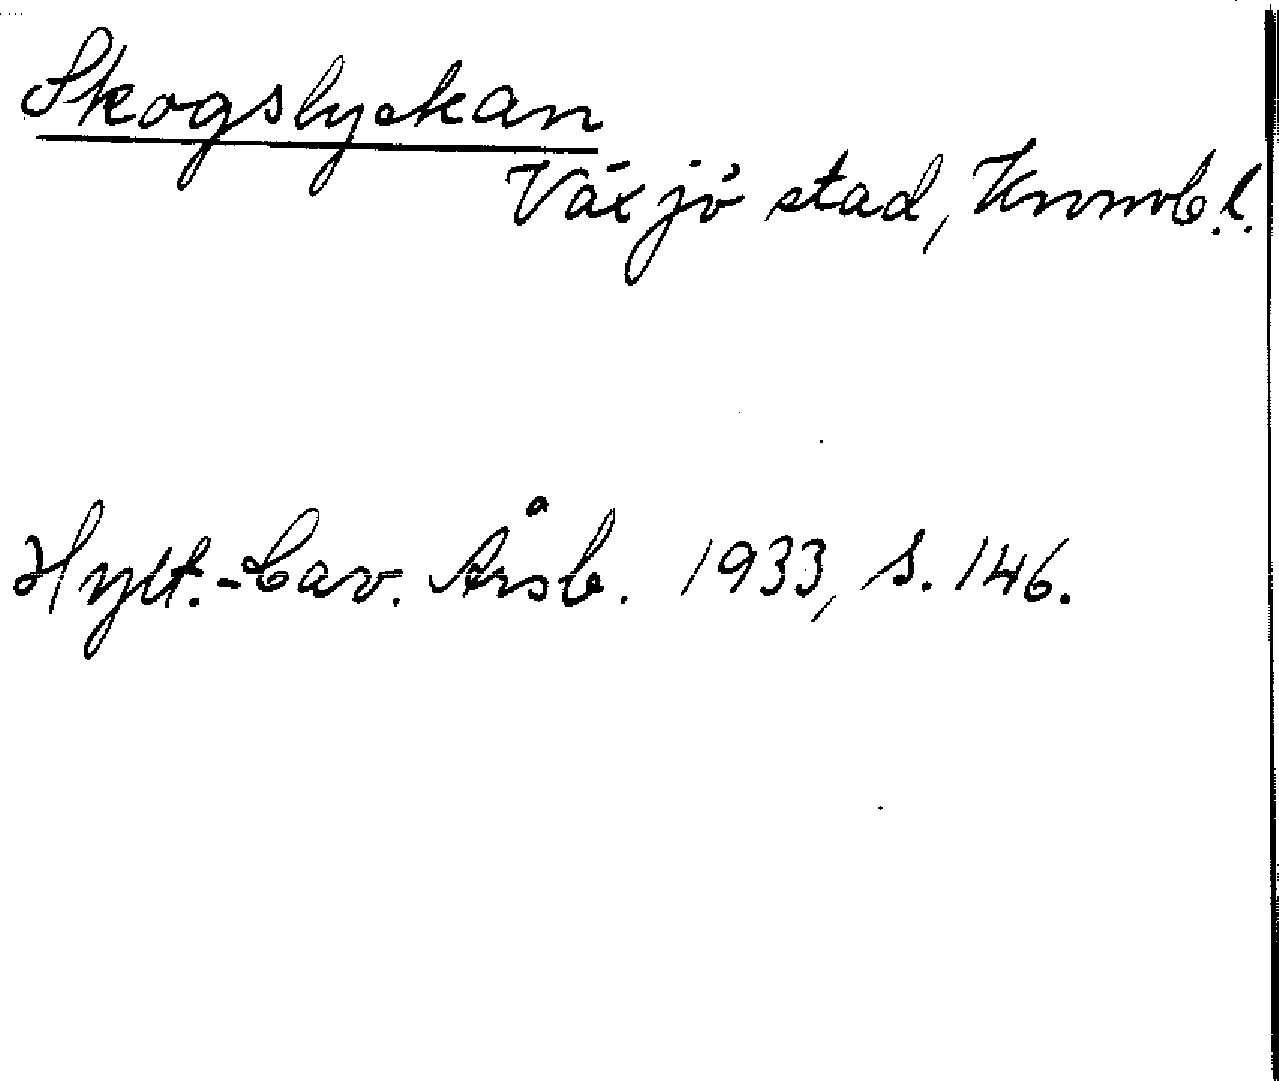 Skogslyckan
Växjö stad, Kronob.l.
Hylt.-Cav. Årsb. 1933, s. 146.